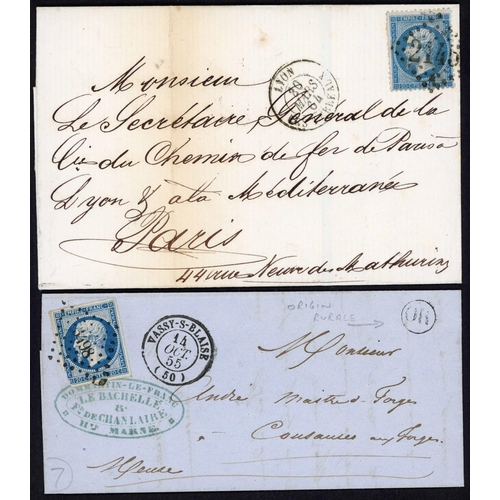 EMPIRE FRANC
2145
LYON
26
MARS
64
Monsieur
Le Secrétaire Général de la
Cie du Chemin de fer de Paris à
Lyon & à la Méditerranée
Paris
44 rue Neuve des Mathurins
EMPIRE FRANC
VASSY-S-BLAISE
14
OCT.
55
(50)
ORIGIN
RURALE
OR
LE BACHELLE
&
DE CHANLAIRE
Hte MARNE
Monsieur
André Maître de Forges
Cousances aux Forges
Meuse